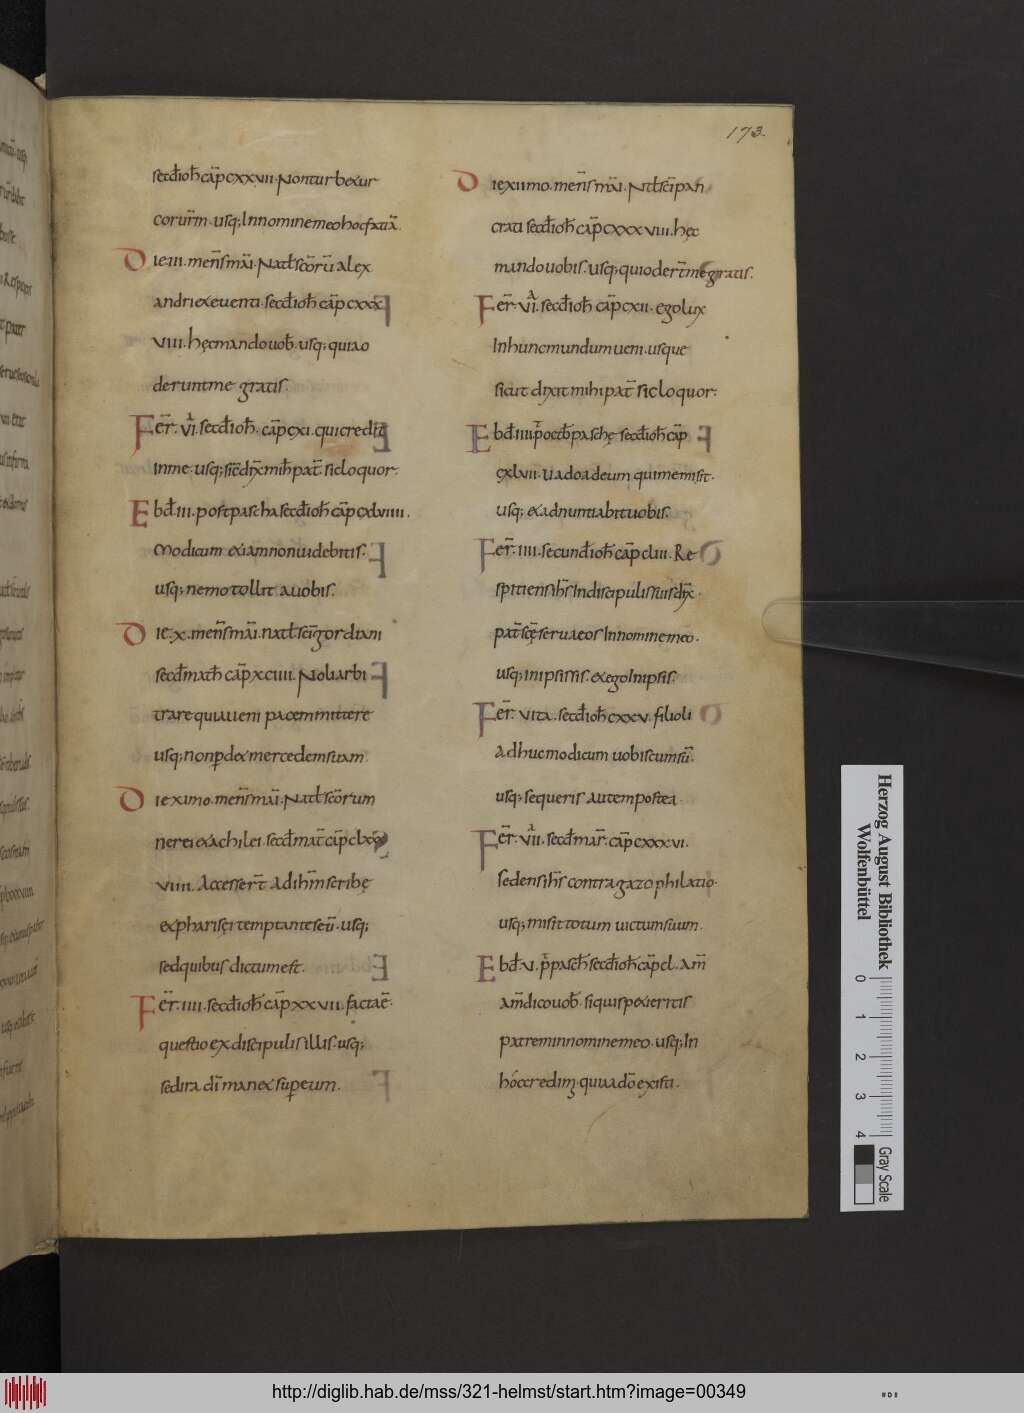 173.
secđioħ cap̄ cxxvii. Non turbetur
cor ur̄m. usq; In nomine meo hoc faciā.
Die iii. men̄s mai. Nat̄ sc̄orū alex
andri et euenti. secđioħ cap̄ cxxx
viii. hęc mando uoƀ. usq; quia o
derunt me gratis.
Fer̄. vi. secđioħ. cap̄ cxi. qui credit
in me. usq; sic̄ dix̄ mih̄ pat̄ sic loquor.
Ebđ. iii. post pascha secđioħ cap̄ cxlviiii.
Modicum et iam non uidebitis.
usq; nemo tollit a uobis.
Die. x. men̄s mai. nat̄ sc̄i gordiani
secđ math̄ cap̄ xciiii. Noli arbi
trare quia ueni pacem mittere
usq; non pdet mercedem suam.
Die xi mo. men̄s mai. Nat̄ sc̄orum
nerei et achilei. secđ mat̄ cap̄ clxx
viiii. Accesser̄t ad ihm̄ scribę
et pharisęi temptantes eū. usq;
sed quibus dictum est.
Fer̄. iiii. secđioħ cap̄ xxvii. facta ē.
questio ex discipulis illis. usq;
sed ira dī manet sup eum.
Die xii mo. men̄s mai. Nat̄ sc̄i pan
crati secđioħ cap̄ cxxxviii. hęc
mando uobis. usq; quia oder̄t me gratis.
Fer̄. vi. secđioħ cap̄ cxii. ego lux
in hunc mundum ueni. usque
sicut dixit mihi pat̄ sic loquor.
Ebđ iiii p̄ oct̄b paschę secđioħ cap̄
cxlvii. Uado ad eum qui me misit.
usq; et adnuntiabit uobis.
Fer̄. iiii. secunđioħ cap̄ cliii. Re
spitiens ih̄s in discipulis suis dix̄.
pat̄ sc̄ę serua eos in nomine meo.
usq; in ipsis sis. et ego in ipsis.
Fer̄. vita. secđioħ cxxv. filioli
adhuc modicum uobiscum sū.
usq; sequeris autem postea.
Fer̄. vii. secđ mar̄. cap̄ cxxxvi.
sedens ih̄s contra gazophilatio.
usq; misit totum uictum suum.
Ebđ. vi. p̄ pascħ secđioħ cap̄ cl. am̄
am̄ dico uoƀ. si quis petieritis
patrem in nomine meo. usq; In
hóc credim; quia a dō existi.
Herzog August Bibliothek
Wolfenbüttel
0 1 2 3 4
Gray Scale
http://diglib.hab.de/mss/321-helmst/start.htm?image=00349